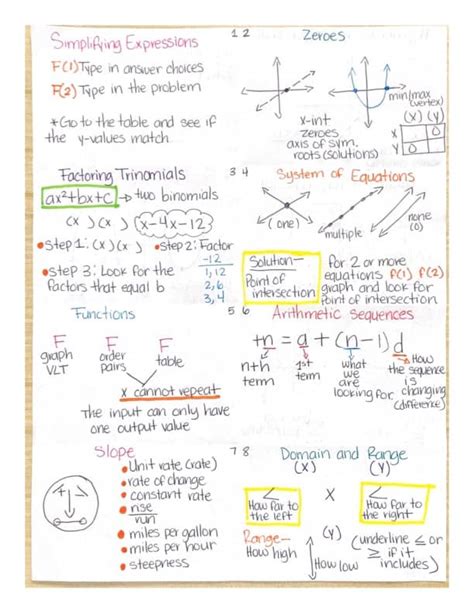 Simplifying Expressions
F(1) Type in answer choices
F(2) Type in the problem
*Go to the table and see if
the y-values match
1 2
Zeroes
x-int
zeroes
axis of sym.
roots (solutions)
min/max
(vertex)
(X) (Y)
X 0
Y 0
Factoring Trinomials
ax²+bx+c → two binomials
( x )( x ) x-4x-12
•Step 1: (x)(x) •Step 2: Factor
•Step 3: Look for the
factors that equal b
-12
1,12
2,6
3,4
3 4
System of Equations
(one)
multiple
none
(0)
Solution-
Point of
intersection
For 2 or more
equations f(1) f(2)
graph and look for
point of intersection
Functions
F
graph
VLT
F
order
pairs
F
table
x cannot repeat
The input can only have
one output value
5 6
Arithmetic Sequences
tn = a + (n-1)d
nth
term
1st
term
what
we
are
looking
for
How
the sequence
is
changing
(difference)
Slope
•Unit rate (rate)
•rate of change
•constant rate
•rise
run
•miles per gallon
•miles per hour
•steepness
7 8
Domain and Range
(X) (Y)
<
How far to
the left
X
<
How far to
the right
Range-
How high
(Y)
How low
(underline < or
> if it
includes)